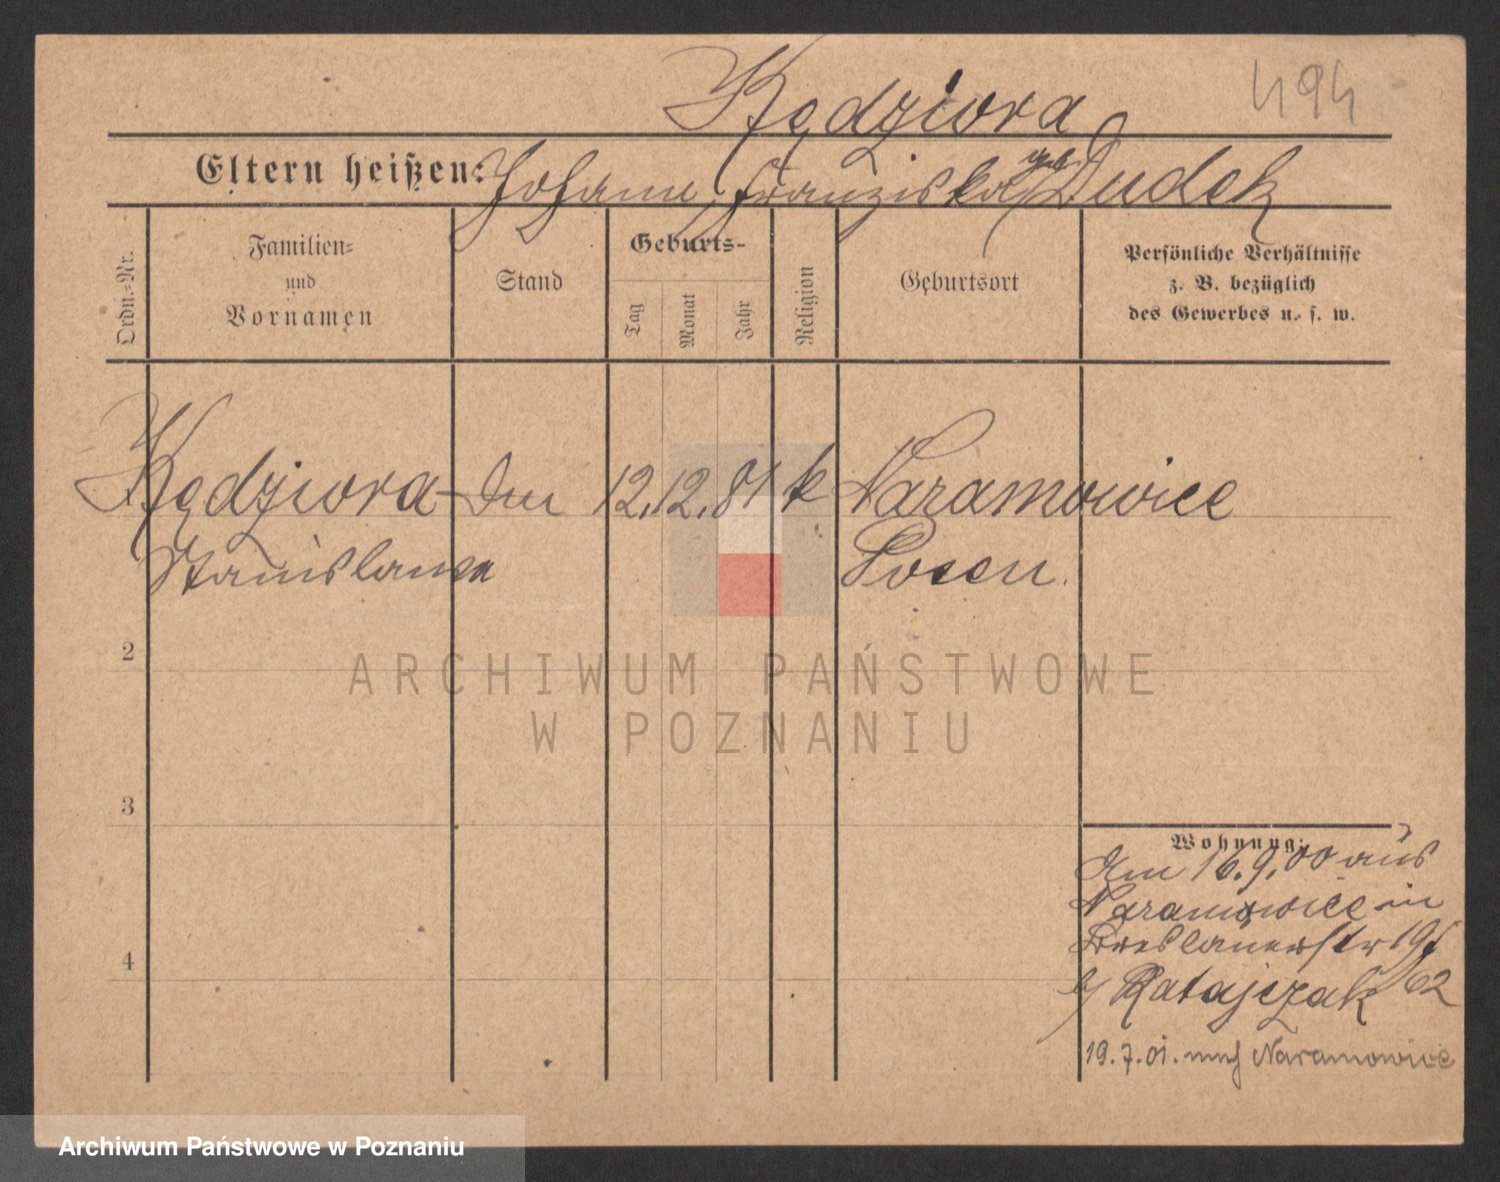 494
Kędziora
Eltern heißen: Johann, Franziska geb Dudek
Ordn.-Nr.
Familien-
und
Vornamen
Stand
Geburts-
Tag
Monat
Jahr
Religion
Geburtsort
Persönliche Verhältnisse
z. B. bezüglich
des Gewerbes u. s. w.
Kędziora 12. 12. 81 k Naramowice
Stanislawa Posen.
2
3
4
Wohnung:
Am 16. 9. 00 aus
Naramowice in
Breslauerstr 19
b/ Ratajczak
19. 7. 01. nach Naramowice
ARCHIWUM PAŃSTWOWE
W POZNANIU
Archiwum Państwowe w Poznaniu